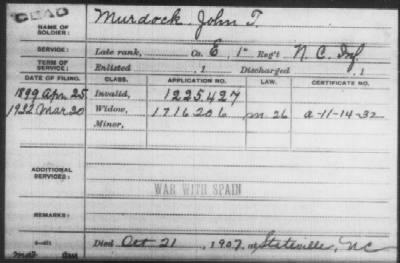 DEAD
NAME OF SOLDIER: Murdock, John T.
SERVICE: Late rank, Co. E, 1st Reg't N. C. Inf.
TERM OF SERVICE: Enlisted , 1 Discharged , 1
DATE OF FILING. CLASS. APPLICATION NO. LAW. CERTIFICATE NO.
1899 Apr 25 Invalid, 1225427
1932 Mar 30 Widow, 1716206 m. 26 a-11-14-32
Minor,
ADDITIONAL SERVICES:
WAR WITH SPAIN
REMARKS:
Died Oct 21, 1907, at Statesville, NC